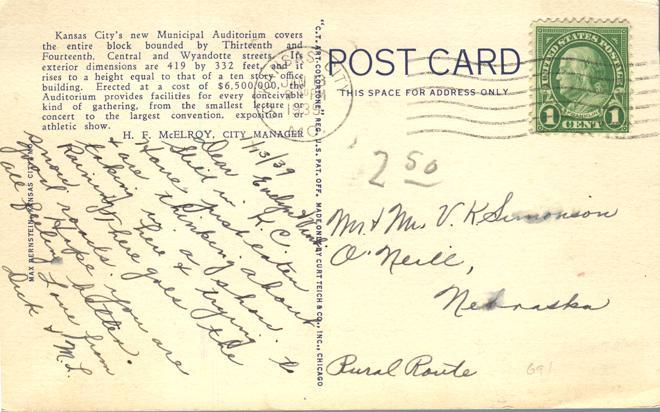 Kansas City's new Municipal Auditorium covers
the entire block bounded by Thirteenth and
Fourteenth, Central and Wyandotte streets. Its
exterior dimensions are 419 by 332 feet, and it
rises to a height equal to that of a ten story office
building. Erected at a cost of $6,500,000, the
Auditorium provides facilities for every conceivable
kind of gathering, from the smallest lecture or
concert to the largest convention, exposition or
athletic show.
H. F. McELROY, CITY MANAGER
MAX BERNSTEIN, KANSAS CITY, MO.
1/13/39
Dear
Still in K.C.
Have just eaten
& are thinking about
taking in a show.
Raining here & trying to
snow. There goes the
roads. Hope you are
all feeling better.
Love from
Dick & M.L.
"C.T. ART-COLORTONE" REG. U.S. PAT. OFF. MADE ONLY BY CURT TEICH & CO., INC., CHICAGO
POST CARD
THIS SPACE FOR ADDRESS ONLY
UNITED STATES POSTAGE
FRANKLIN
1 CENT 1
2 50
Mr & Mrs V. K Simonson
O'Neill,
Nebraska
Rural Route
691